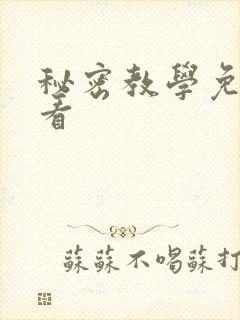 秘密教學免
看
蘇蘇不唱蘇打